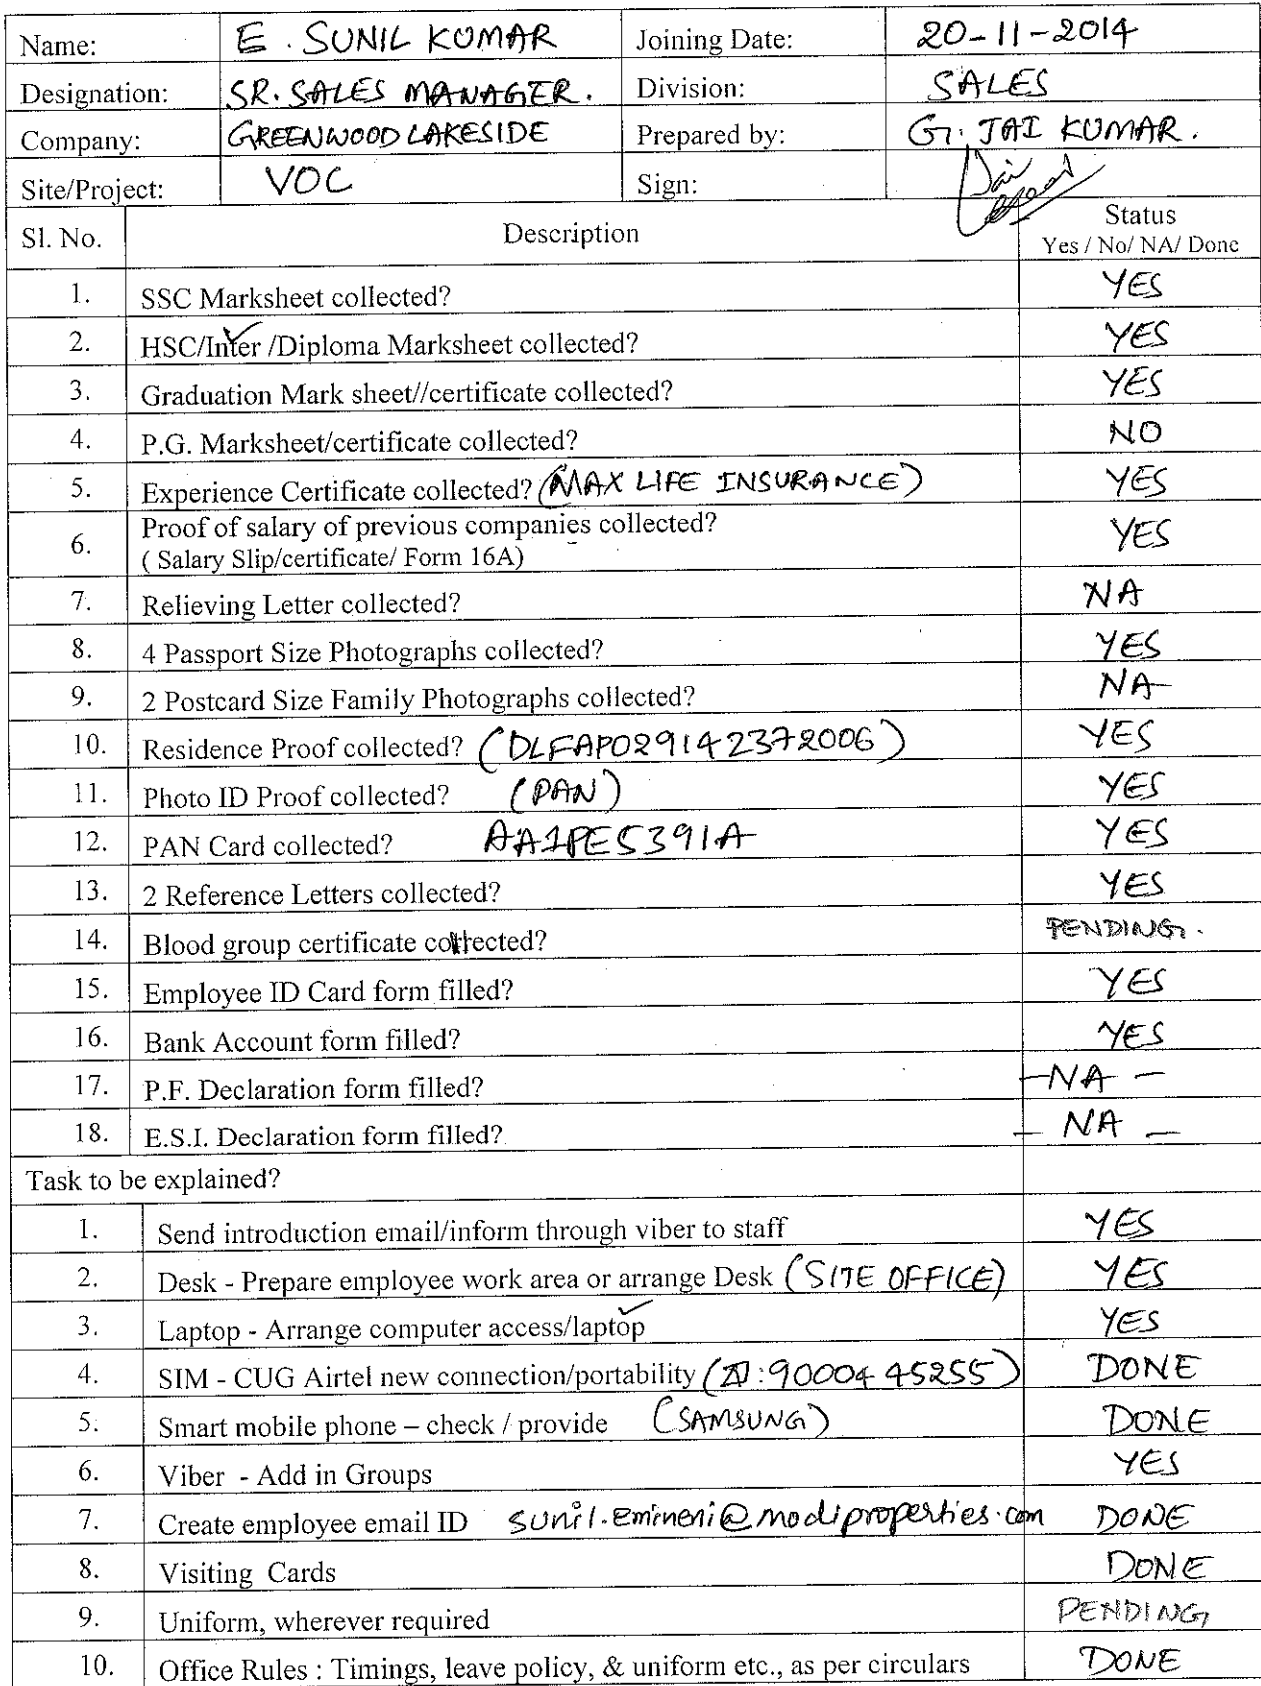 Name: E. SUNIL KUMAR Joining Date: 20-11-2014
Designation: SR. SALES MANAGER. Division: SALES
Company: GREENWOOD LAKESIDE Prepared by: G. JAI KUMAR.
Site/Project: VOC Sign:
Sl. No. Description Status
Yes / No/ NA/ Done
1. SSC Marksheet collected? YES
2. HSC/Inter /Diploma Marksheet collected? YES
3. Graduation Mark sheet//certificate collected? YES
4. P.G. Marksheet/certificate collected? NO
5. Experience Certificate collected? (MAX LIFE INSURANCE) YES
6. Proof of salary of previous companies collected? YES
( Salary Slip/certificate/ Form 16A)
7. Relieving Letter collected? NA
8. 4 Passport Size Photographs collected? YES
9. 2 Postcard Size Family Photographs collected? NA
10. Residence Proof collected? (DLFAP029142372006) YES
11. Photo ID Proof collected? (PAN) YES
12. PAN Card collected? AA1PE5391A YES
13. 2 Reference Letters collected? YES
14. Blood group certificate collected? PENDING.
15. Employee ID Card form filled? YES
16. Bank Account form filled? YES
17. P.F. Declaration form filled? -NA -
18. E.S.I. Declaration form filled? - NA -
Task to be explained?
1. Send introduction email/inform through viber to staff YES
2. Desk - Prepare employee work area or arrange Desk (SITE OFFICE) YES
3. Laptop - Arrange computer access/laptop YES
4. SIM - CUG Airtel new connection/portability :9000445255) DONE
5. Smart mobile phone – check / provide (SAMSUNG) DONE
6. Viber - Add in Groups YES
7. Create employee email ID sunil.emineni@modiproperties.com DONE
8. Visiting Cards DONE
9. Uniform, wherever required PENDING
10. Office Rules : Timings, leave policy, & uniform etc., as per circulars DONE